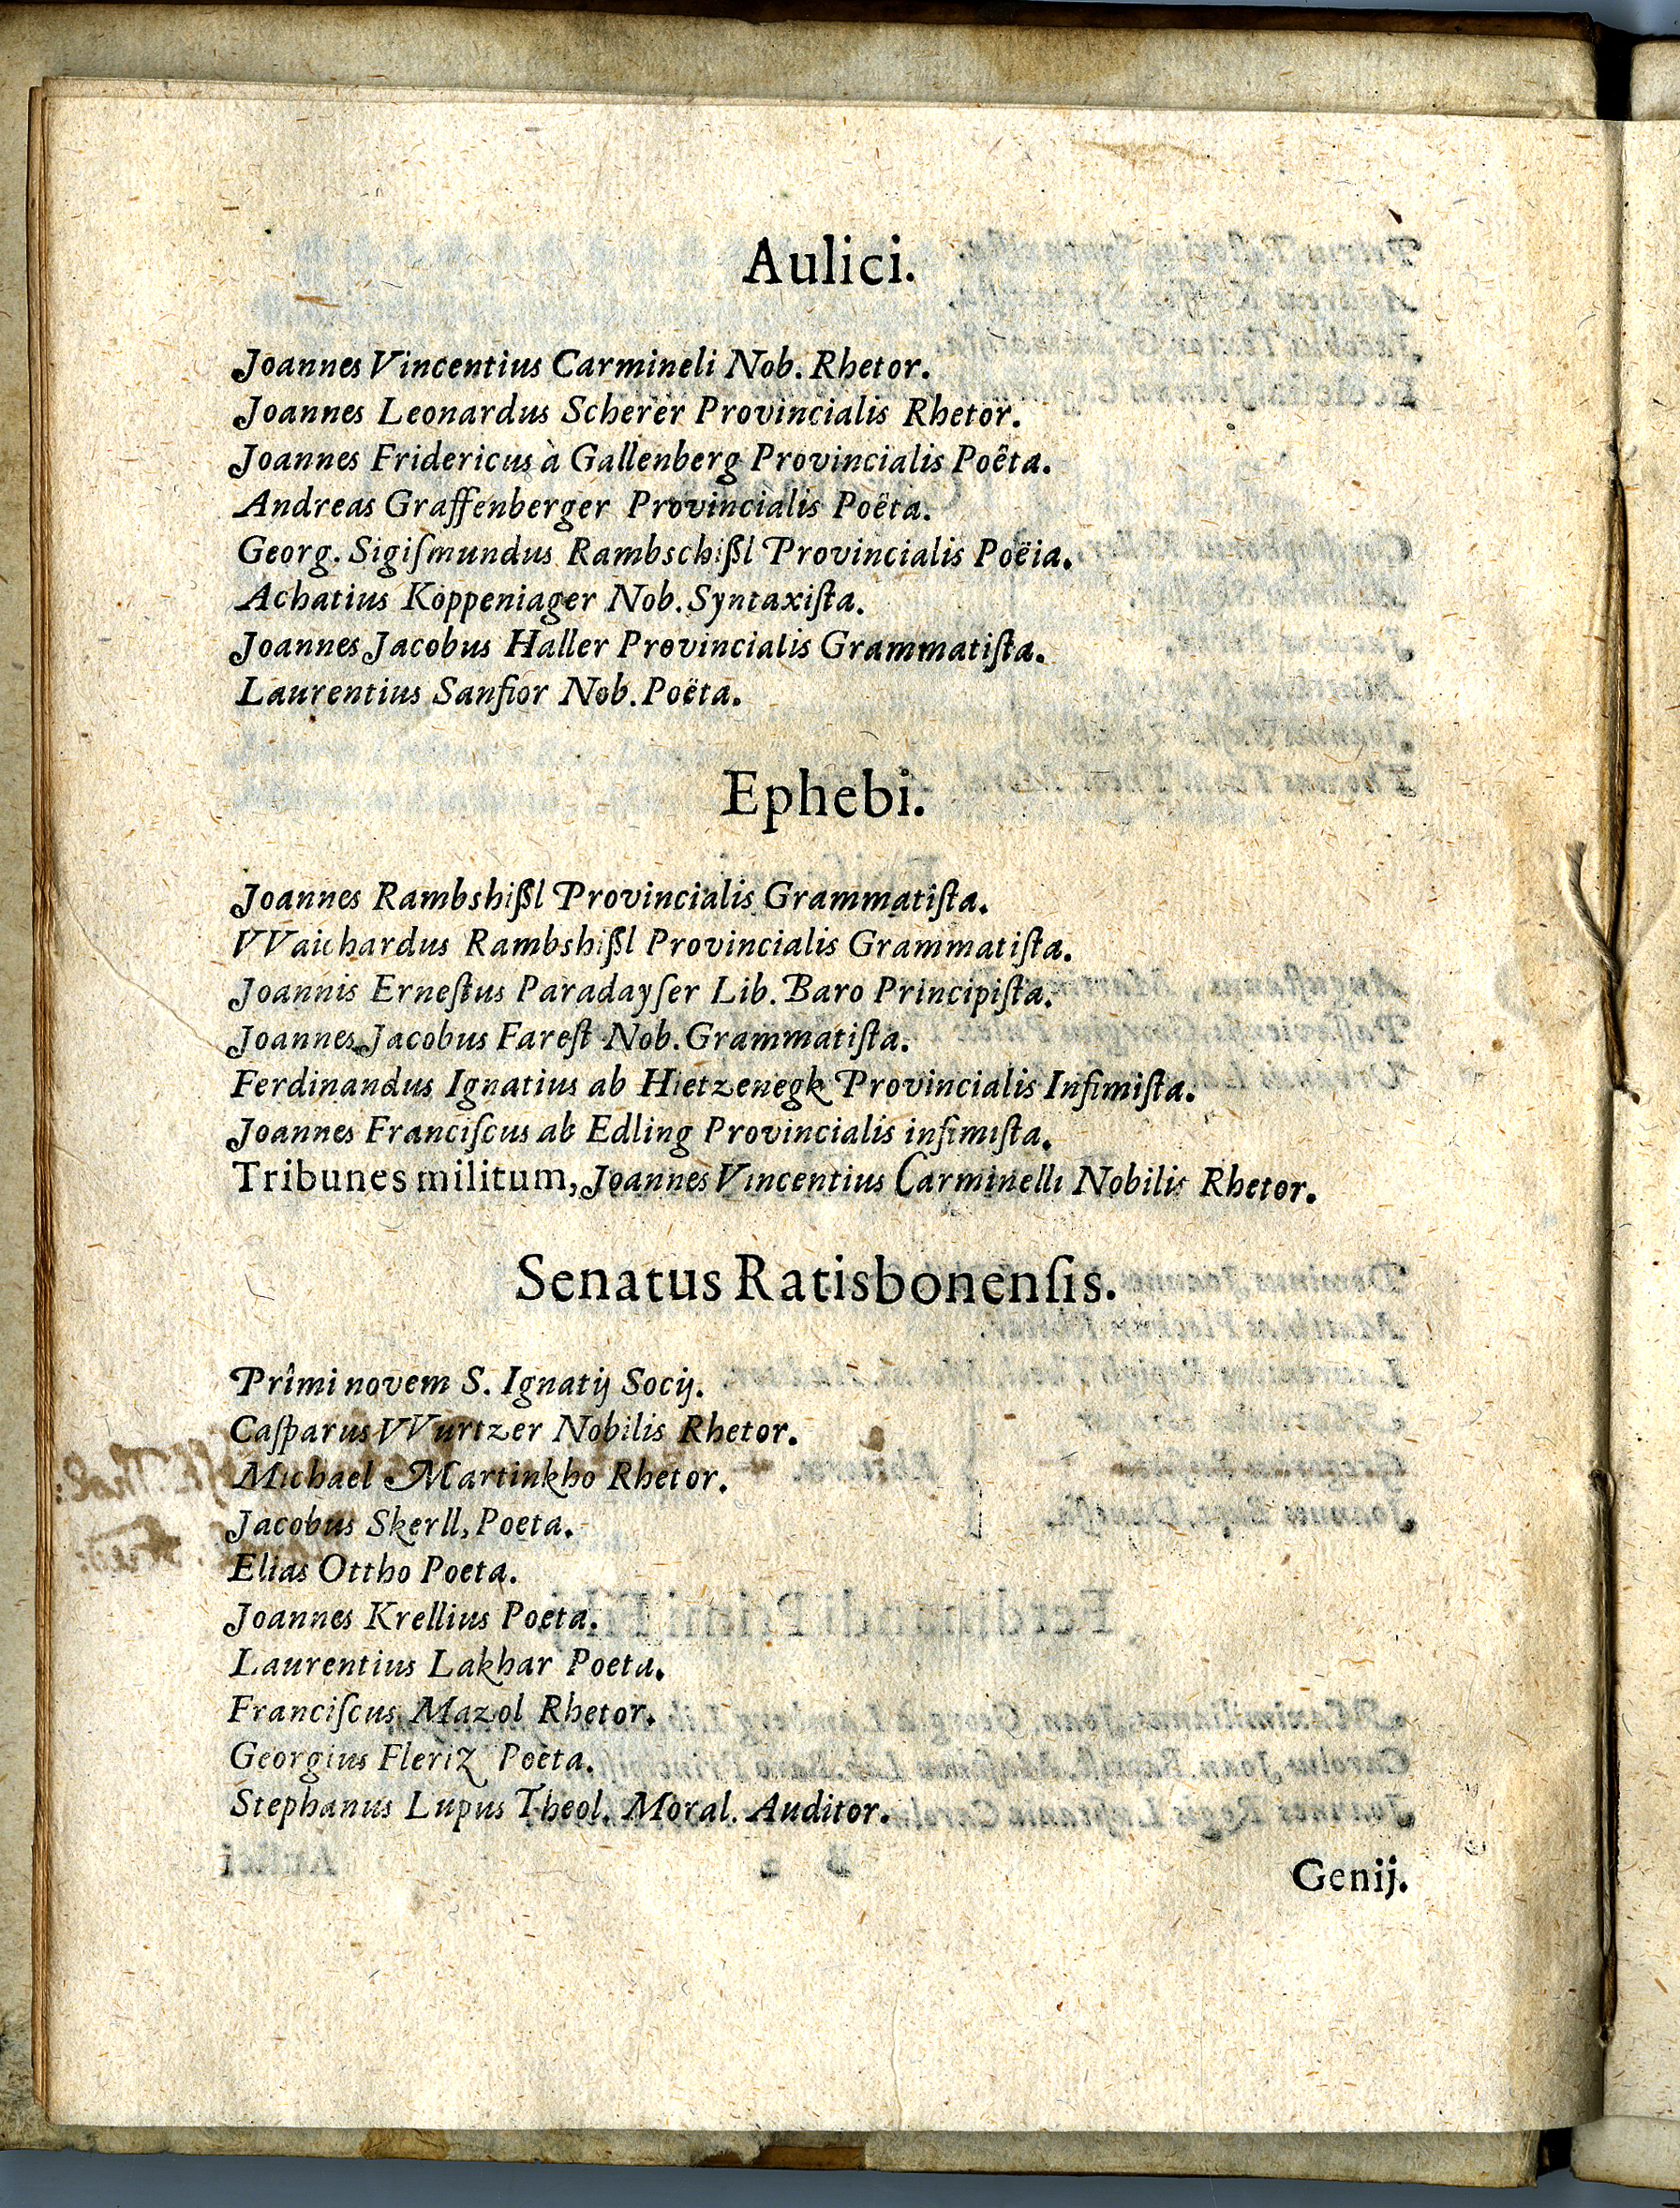 Aulici.
Joannes Vincentius Carmineli Nob. Rhetor.
Joannes Leonardus Scherer Provincialis Rhetor.
Joannes Fridericus à Gallenberg Provincialis Poëta.
Andreas Graffenberger Provincialis Poëta.
Georg. Sigiſmundus Rambschißl Provincialis Poëia.
Achatius Köppeniager Nob. Syntaxiſta.
Joannes Jacobus Haller Provincialis Grammatiſta.
Laurentius Sanfior Nob. Poëta.
Ephebi.
Joannes Rambshißl Provincialis Grammatiſta.
VVaichardus Rambshißl Provincialis Grammatiſta.
Joannis Erneſtus Paradayſer Lib. Baro Principiſta.
Joannes Jacobus Fareſt Nob. Grammatiſta.
Ferdinandus Ignatius ab Hietzenegk Provincialis Infimiſta.
Joannes Franciſcus ab Edling Provincialis infimiſta.
Tribunes militum, Joannes Vincentius Carminelli Nobilis Rhetor.
Senatus Ratisbonenſis.
Primi novem S. Ignatij Socij.
Caſparus VVurtzer Nobilis Rhetor.
Michael Martinkho Rhetor.
Jacobus Skerll, Poeta.
Elias Ottho Poeta.
Joannes Krellius Poeta.
Laurentius Lakhar Poeta.
Franciſcus Mazol Rhetor.
Georgius Fleriz Poëta.
Stephanus Lupus Theol. Moral. Auditor.
Genij.